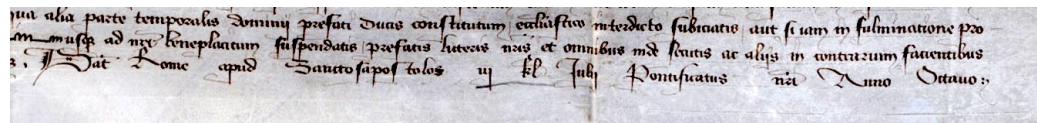 qua alia parte temporalis dominii prefati Ducis constitutum ecclesiastico interdicto subiciatis aut si iam in fulminatione pro
usq3 ad nrm beneplacitum suspendatis prefatis litteris nris et omnibus inde secutis ac aliis in contrarium facientibus
Dat Rome apud Sanctosapostolos vi kl Julii Pontificatus nri Anno Octavo